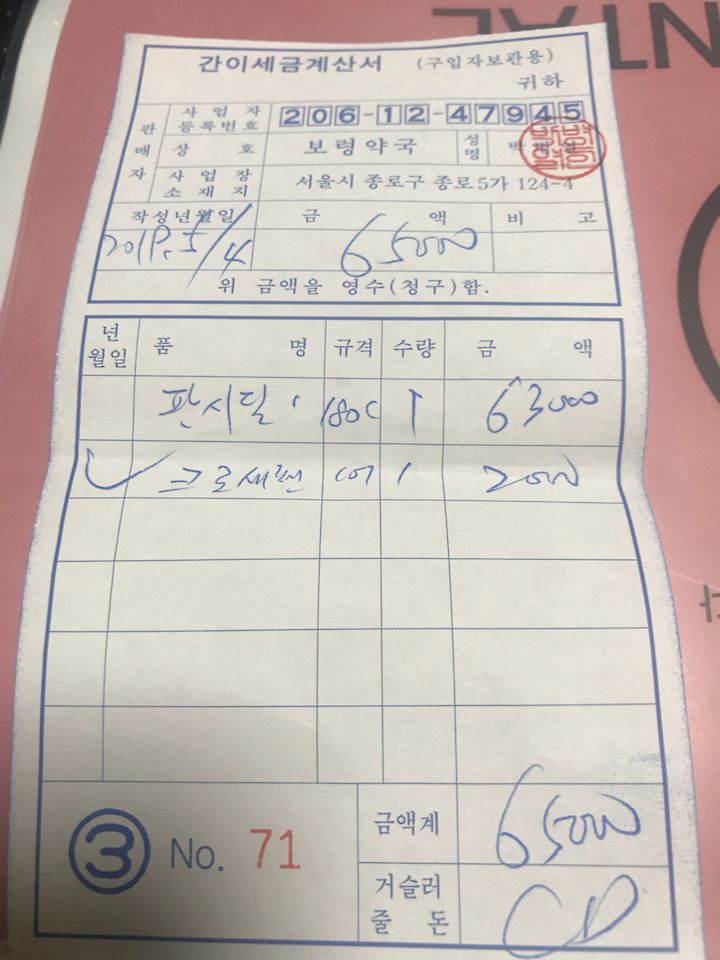 NTAL
간이세금계산서 (구입자보관용)
귀하
판매자
사업자등록번호 206-12-47945
상호 보령약국 성명 박
사업장소재지 서울시 종로구 종로5가 124-4
작성년월일 금액 비고
5/4 65000
위 금액을 영수(청구)함.
년월일 품명 규격 수량 금액
판시딜 180C 1 63000
크로세렌 1 2000
③ No. 71
금액계 65000
거슬러줄돈 CD